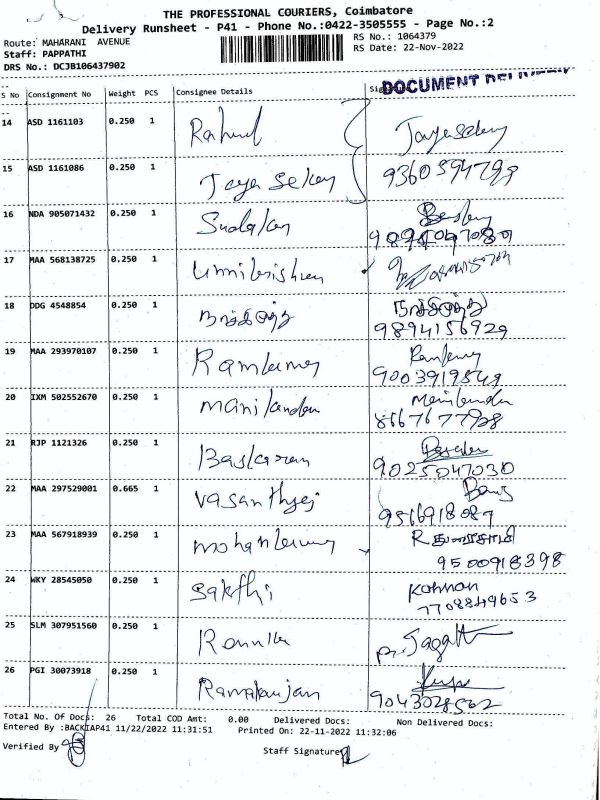 THE PROFESSIONAL COURIERS, Coimbatore
Delivery Runsheet - P41 - Phone No.:0422-3505555 - Page No.:2
Route: MAHARANI AVENUE RS No.: 1064379
Staff: PAPPATHI RS Date: 22-Nov-2022
DRS No.: DCJB106437902
DOCUMENT DELIVERY
S No Consignment No Weight PCS Consignee Details
14 ASD 1161103 0.250 1 Rahul Jayasekay
15 ASD 1161086 0.250 1 Jaya Sekay 9360594799
16 NDA 905071432 0.250 1 Sudakar
17 MAA 568138725 0.250 1 Unnikrishnan
18 DDG 4548854 0.250 1
9894156929
19 MAA 293970107 0.250 1 Ramkumar
9003919549
20 IXM 502552670 0.250 1 manikandan Manikandan
8667677928
21 RJP 1121326 0.250 1 Baskaran
9025047030
22 MAA 297529001 0.665 1 Vasanthraj
9566918087
23 MAA 567918939 0.250 1 mohankumar R துரைசாமி
9500918398
24 WKY 28545050 0.250 1 Sakthi Kannan
7708849653
25 SLM 307951560 0.250 1
26 PGI 30073918 0.250 1 Ramanujan
9043028562
Total No. Of Docs: 26 Total COD Amt: 0.00 Delivered Docs: Non Delivered Docs:
Entered By :BACKIAP41 11/22/2022 11:31:51 Printed On: 22-11-2022 11:32:06
Verified By Staff Signature